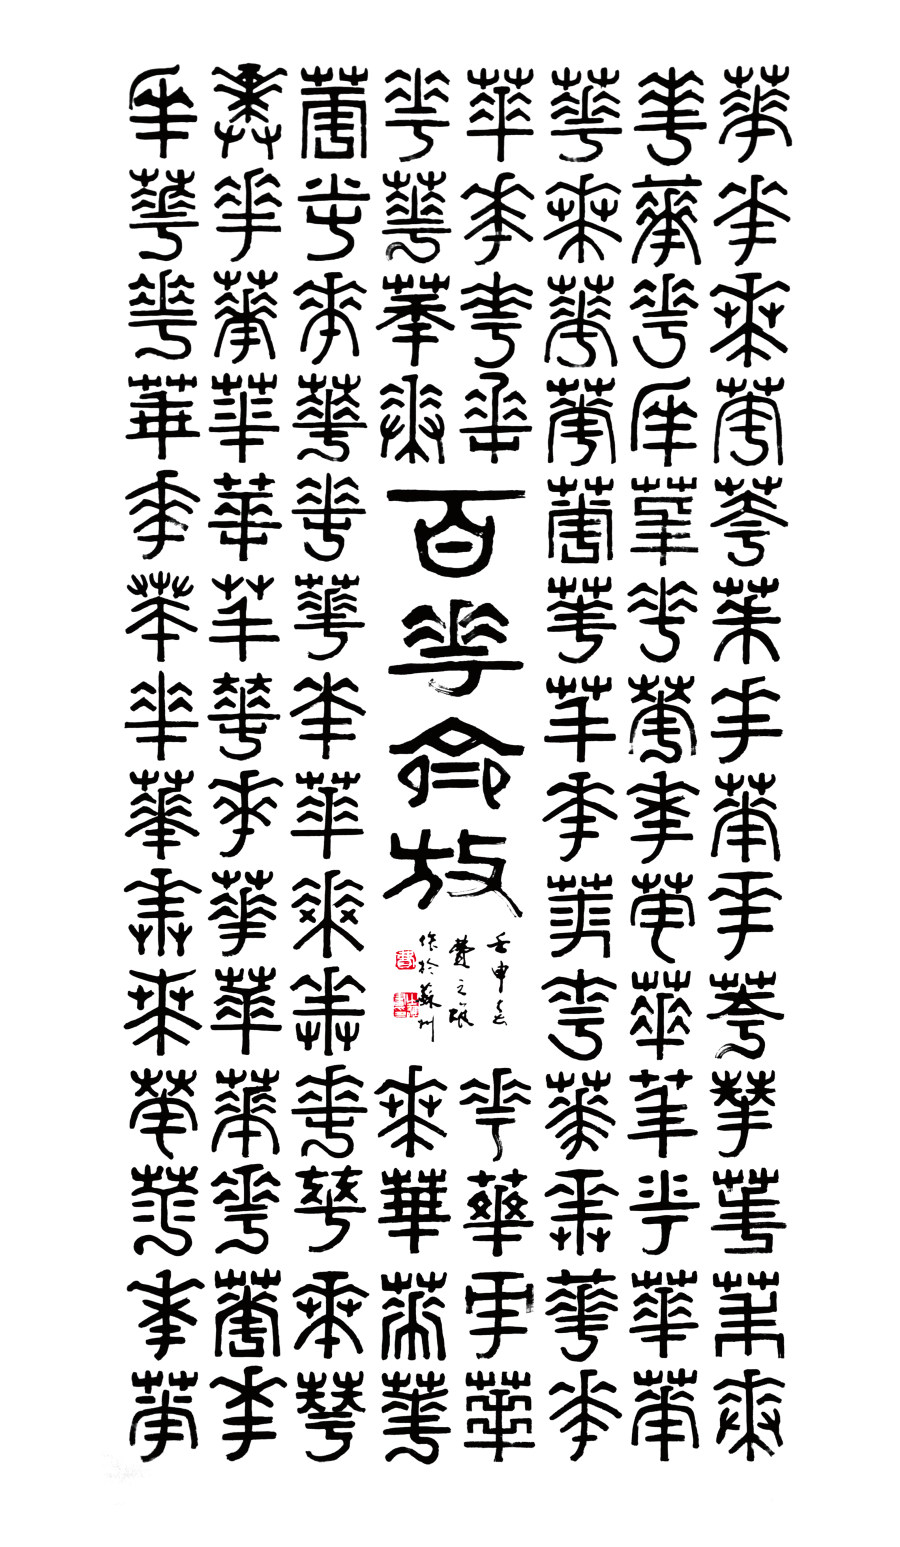 華華華華華華華華華華華華華華
華華華華華華華華華華華華華華
華華華華華華華華華華華華華華
華華華華
華華華華
百華齊放
壬申春
費之雄
作於蘇州
華華華華
華華華華
華華華華華華華華華華華華華華
華華華華華華華華華華華華華華
華華華華華華華華華華華華華華